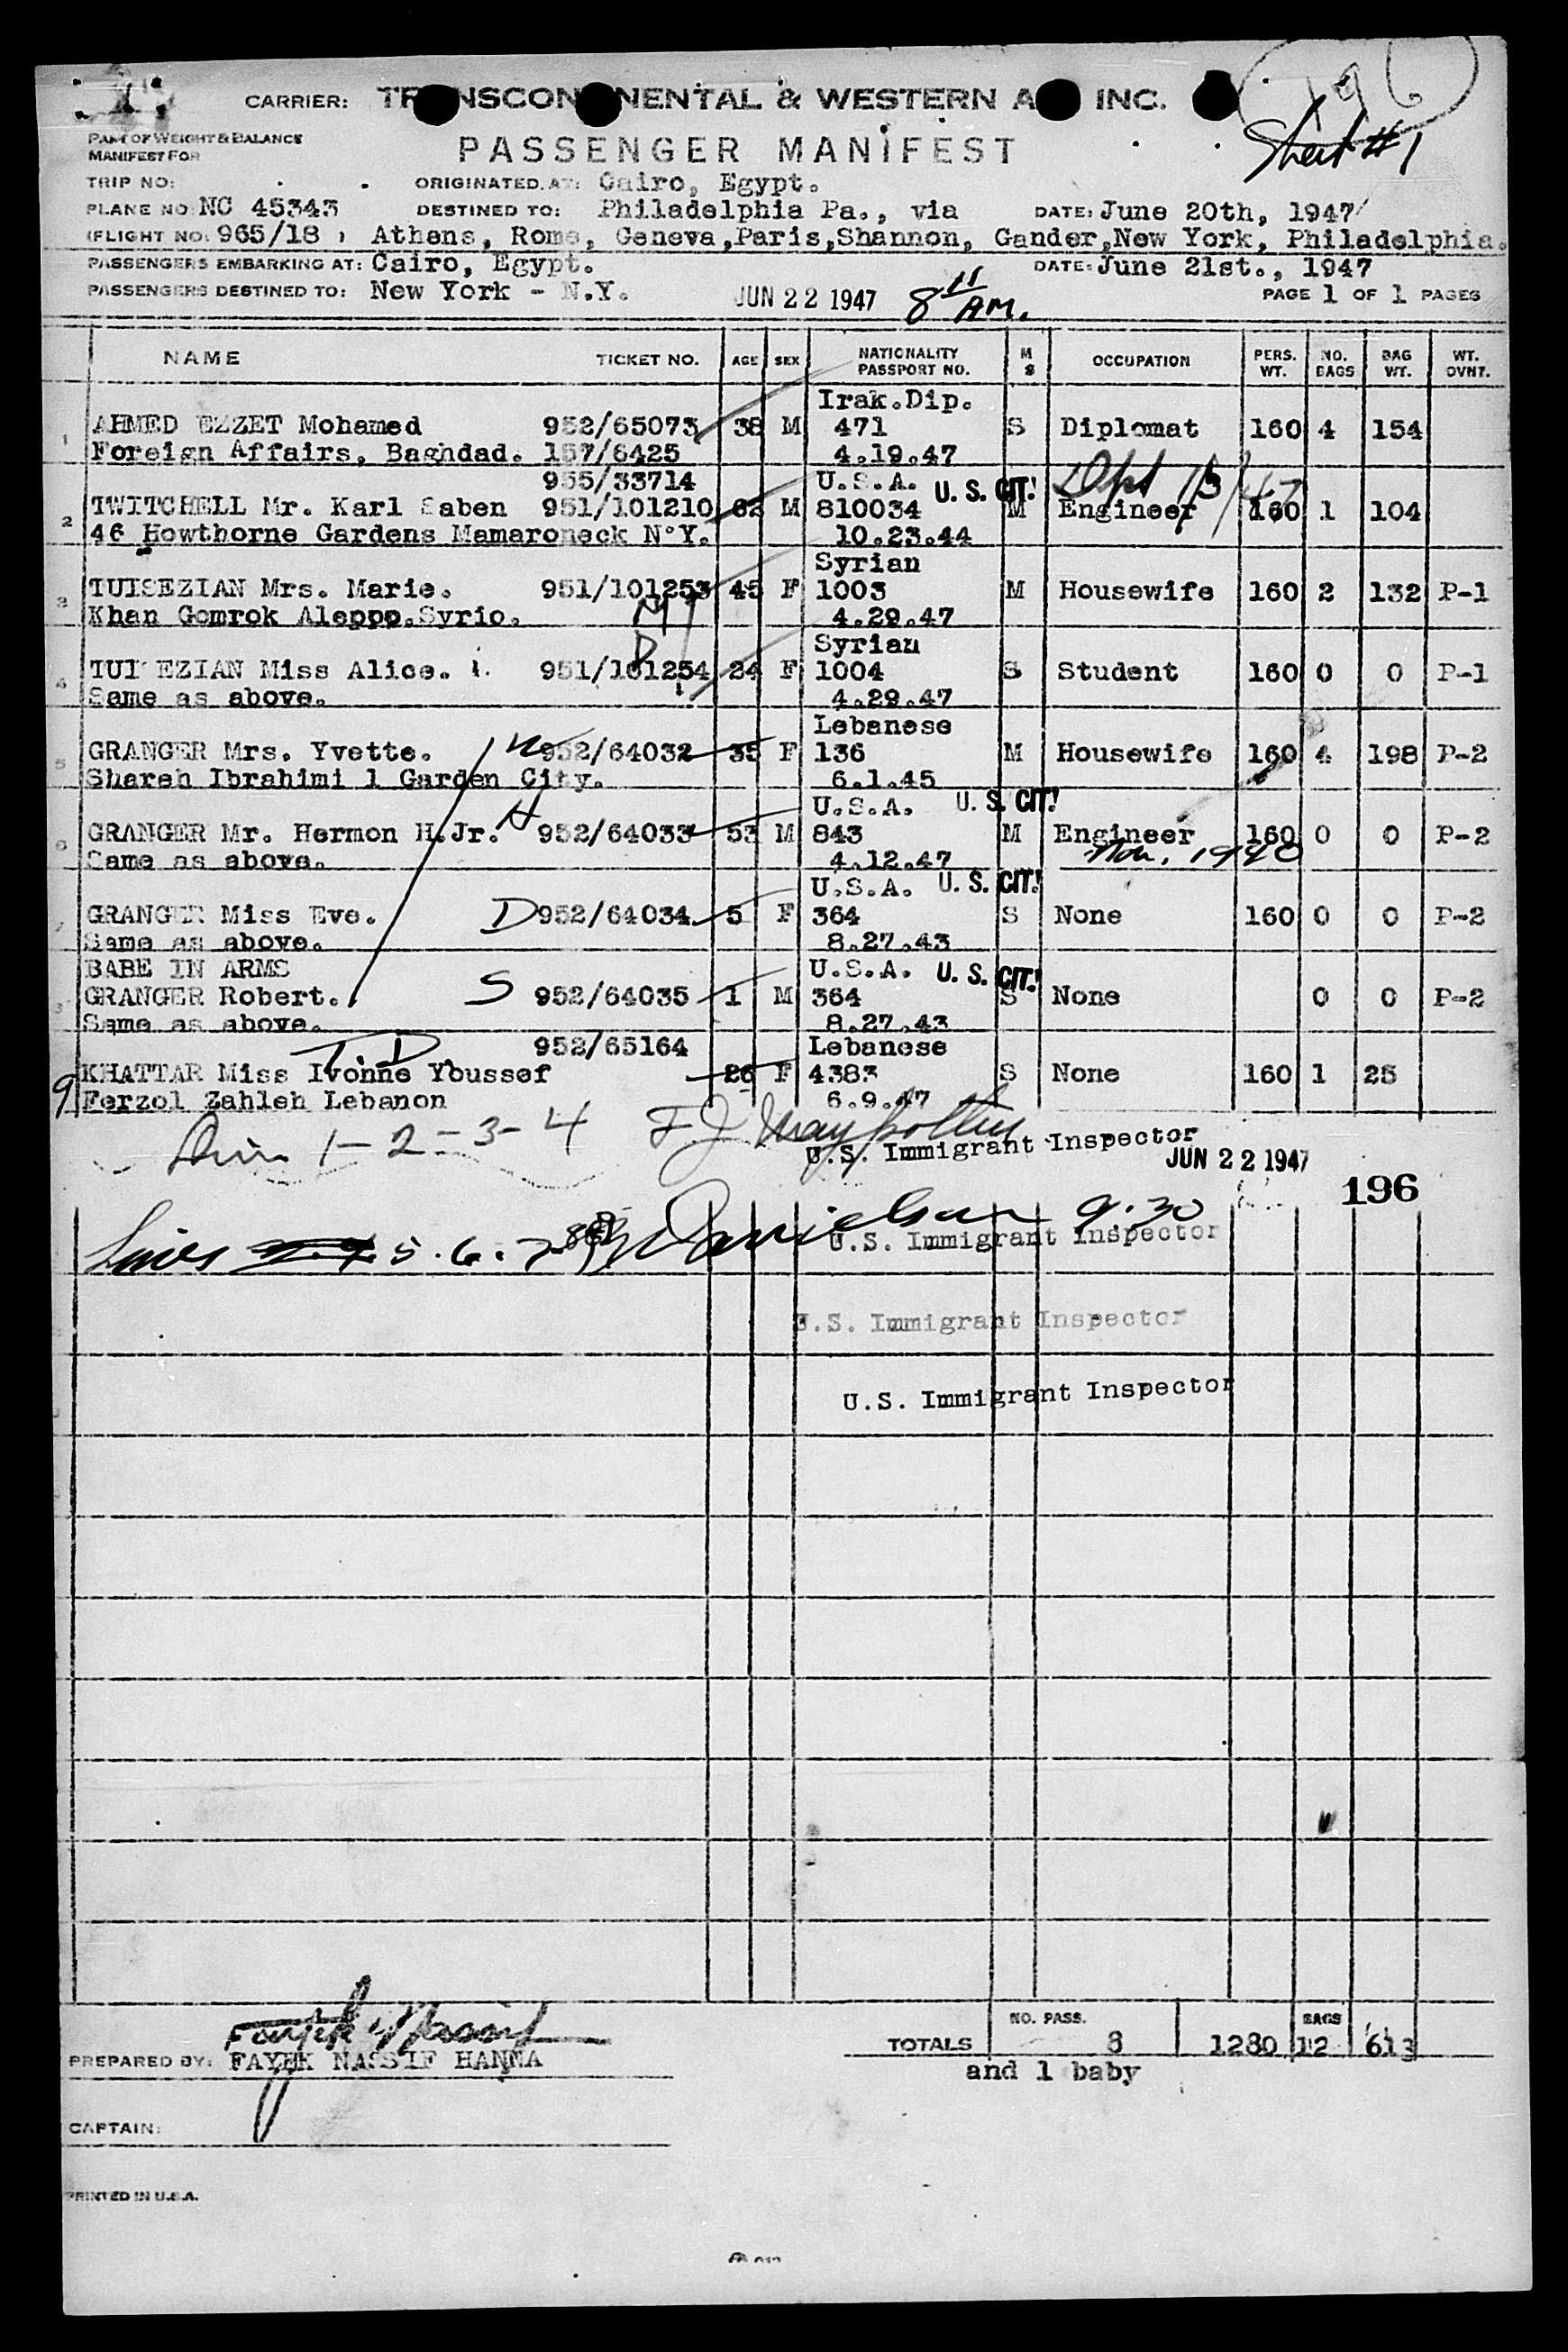 196
CARRIER: TR NSCON NENTAL & WESTERN A INC.
PART OF WEIGHT & BALANCE
MANIFEST FOR
PASSENGER MANIFEST
Sheet #1
TRIP NO:
ORIGINATED AT: Cairo, Egypt.
PLANE NO: NC 45343 DESTINED TO: Philadelphia Pa., via DATE: June 20th, 1947
(FLIGHT NO: 965/18 ) Athens, Rome, Geneva,Paris,Shannon, Gander,New York, Philadelphia.
PASSENGERS EMBARKING AT: Cairo, Egypt. DATE: June 21st., 1947
PASSENGERS DESTINED TO: New York - N.Y. JUN 22 1947 8 11 AM. PAGE 1 OF 1 PAGES
NAME TICKET NO. AGE SEX NATIONALITY PASSPORT NO. M S OCCUPATION PERS. WT. NO. BAGS BAG WT. WT. OVNT.
Irak.Dip.
1 AHMED EZZET Mohamed 952/65073 38 M 471 S Diplomat 160 4 154
Foreign Affairs, Baghdad. 157/6425 4.19.47
955/33714 U.S.A. U. S. CIT!
2 TWITCHELL Mr. Karl Saben 951/101210 62 M 810034 M Engineer 160 1 104
46 Howthorne Gardens Mamaroneck N°Y. 10.23.44
Syrian
3 TUISEZIAN Mrs. Marie. 951/101253 45 F 1003 M Housewife 160 2 132 P-1
Khan Gomrok Aleppo.Syrio. M 4.29.47
D Syrian
4 TUI EZIAN Miss Alice. 951/101254 24 F 1004 S Student 160 0 0 P-1
Same as above. 4.29.47
Lebanese
5 GRANGER Mrs. Yvette. W 952/64032 35 F 136 M Housewife 160 4 198 P-2
Shareh Ibrahimi 1 Garden City. 6.1.45
U.S.A. U. S. CIT!
6 GRANGER Mr. Hermon H.Jr. H 952/64033 53 M 843 M Engineer 160 0 0 P-2
Same as above. 4.12.47 Nov. 1940
U.S.A. U. S. CIT!
7 GRANGER Miss Eve. D 952/64034 5 F 364 S None 160 0 0 P-2
Same as above. 8.27.43
BABE IN ARMS U.S.A. U. S. CIT!
GRANGER Robert. S 952/64035 1 M 364 S None 0 0 P-2
Same as above. 8.27.43
T.D. 952/65164 Lebanese
9 KHATTAR Miss Ivonne Youssef 26 F 4383 S None 160 1 25
Ferzol Zahleh Lebanon 6.9.47
1-2-3-4
U.S. Immigrant Inspector
JUN 22 1947
196
Lines 5.6.7 Danielson 9.30
U.S. Immigrant Inspector
U.S. Immigrant Inspector
U.S. Immigrant Inspector
NO. PASS. BAGS
TOTALS 8 1280 12 613
and 1 baby
PREPARED BY: FAYEK NASSIF HANNA
CAPTAIN:
PRINTED IN U.S.A.